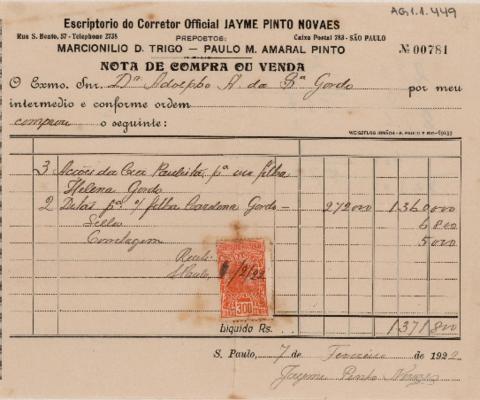 AG.1.1.449
Escriptorio do Corretor Official JAYME PINTO NOVAES
Rua S. Bento, 57 - Telephone 2738
PREPOSTOS:
Caixa Postal 783 - SÃO PAULO
MARCIONILIO D. TRIGO — PAULO M. AMARAL PINTO
Nº 00781
NOTA DE COMPRA OU VENDA
O Exmo. Snr. Dr. Adolpho A. da Sª Gordo por meu
intermedio e conforme ordem
comprou o seguinte:
3 Acções da Cia Paulista, pª sua filha
Helena Gordo
2 Ditas pª s/ filha Carolina Gordo - 272000 1.360000
Sellos 6800
Corretagem 5000
Recebi
S. Paulo, 7/2/22
300
Liquido Rs. 1371800
S. Paulo, 7 de Fevereiro de 1922
Jayme Pinto Novaes